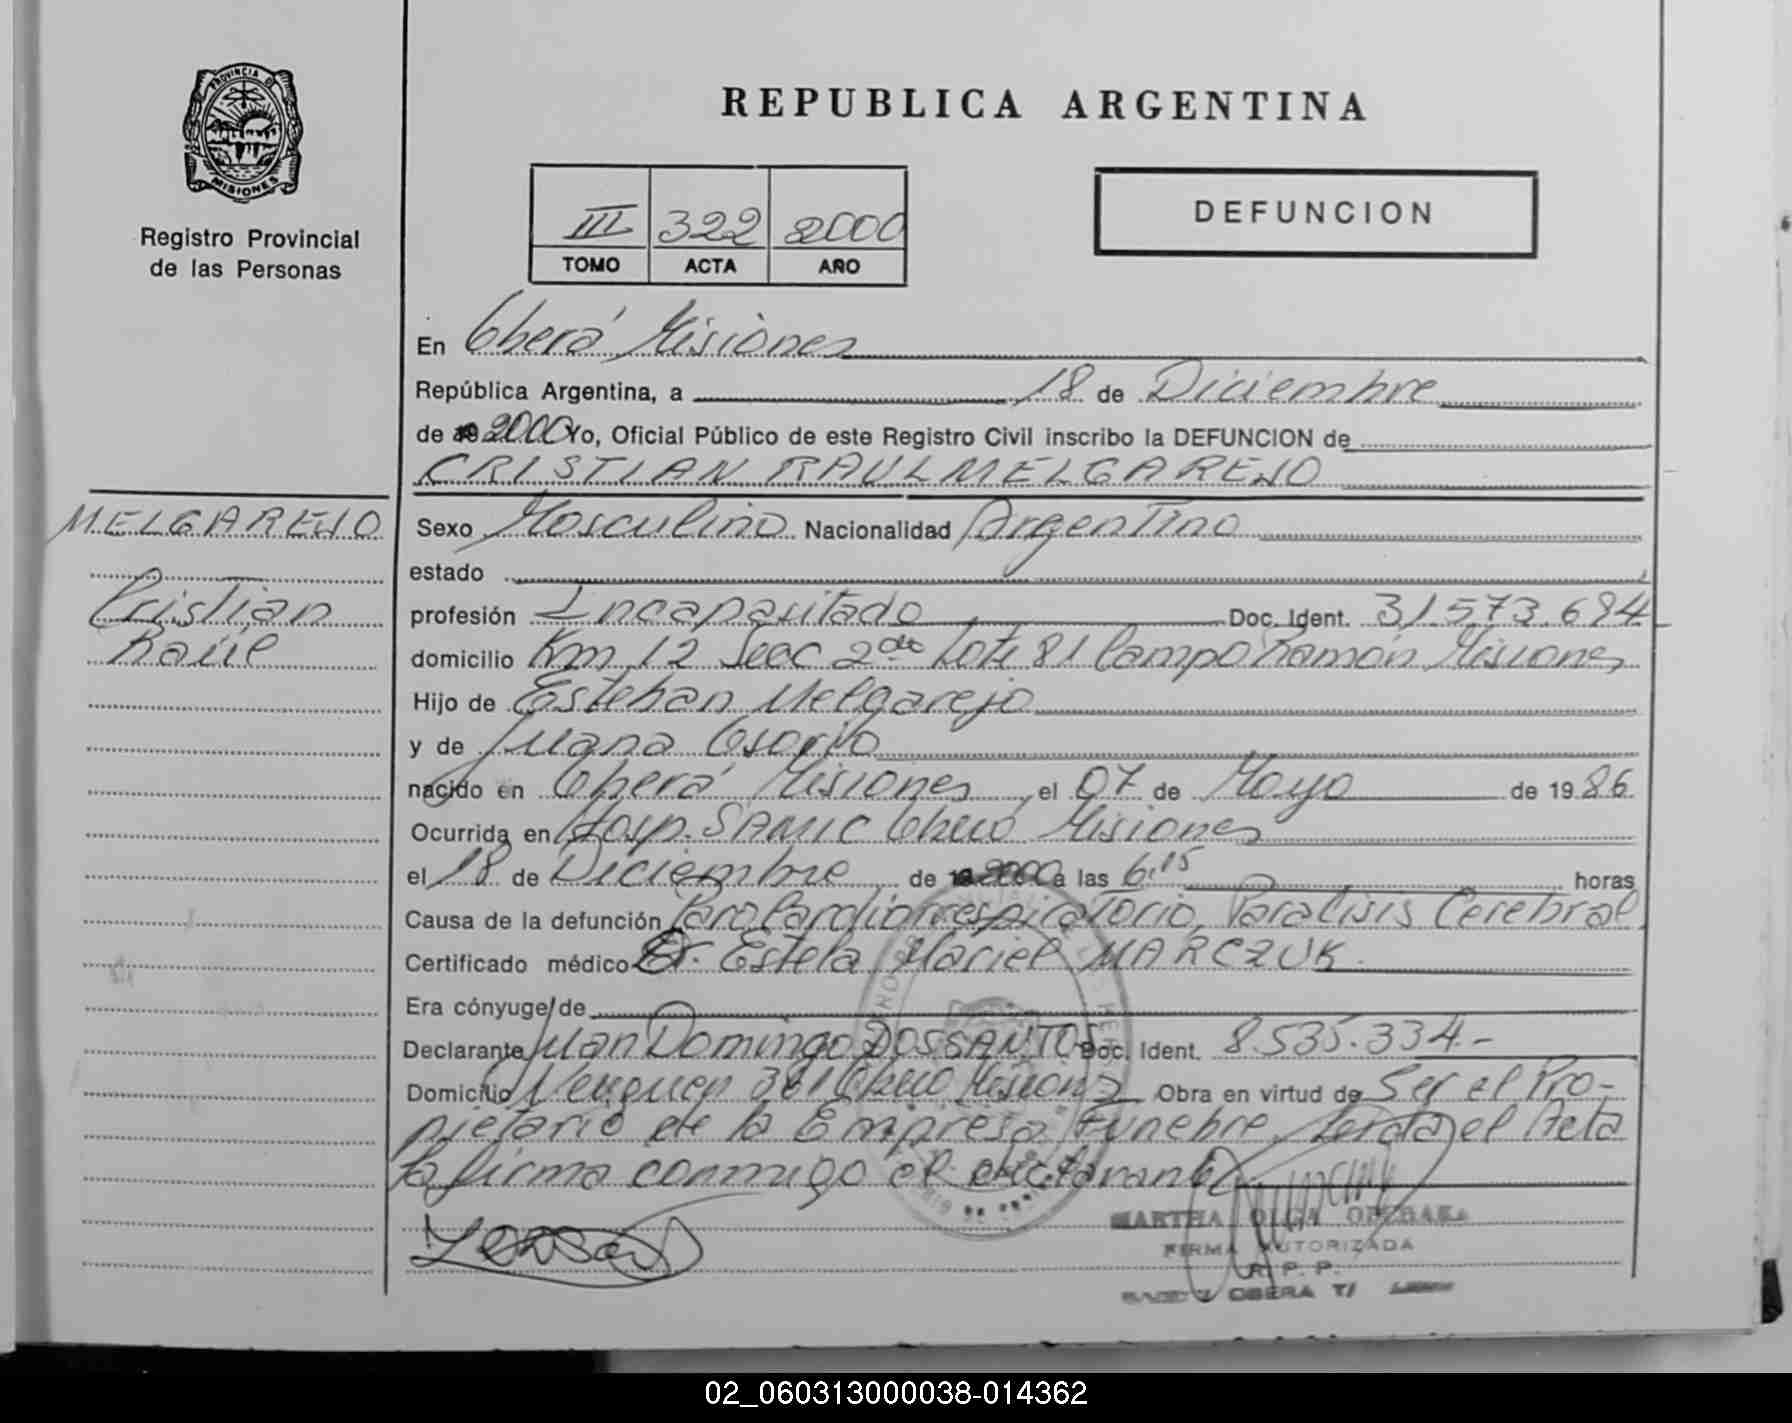 PROVINCIA DE
MISIONES
Registro Provincial
de las Personas
REPUBLICA ARGENTINA
III 322 2000
TOMO ACTA AÑO
DEFUNCION
En Oberá Misiones
República Argentina, a 18 de Diciembre
de 19 2000 Yo, Oficial Público de este Registro Civil inscribo la DEFUNCION de
CRISTIAN RAUL MELGAREJO
MELGAREJO
Cristian
Raúl
Sexo Masculino Nacionalidad Argentino
estado
profesión Incapacitado Doc. Ident. 31.573.694
domicilio Km 12 Secc 2da Lote 81 Campo Ramón Misiones
Hijo de Esteban Melgarejo
y de Juana Osorio
nacido en Oberá Misiones el 07 de Mayo de 1986
Ocurrida en Hosp. SAMIC Oberá Misiones
el 18 de Diciembre de 2000 a las 6.15 horas
Causa de la defunción Paro Cardiorrespiratorio, Paralisis Cerebral
Certificado médico Dr. Estela Mariel MARCZUK
Era cónyuge de
Declarante Juan Domingo DOSSANTOS Doc. Ident. 8.535.334.-
Domicilio Neuquen 381 Oberá Misiones Obra en virtud de Ser el Pro-
pietario de la Empresa Funebre, Leida el Acta
la firma conmigo el declarante
MARTHA OLGA
FIRMA AUTORIZADA
R. P. P.
OBERA
02_060313000038-014362